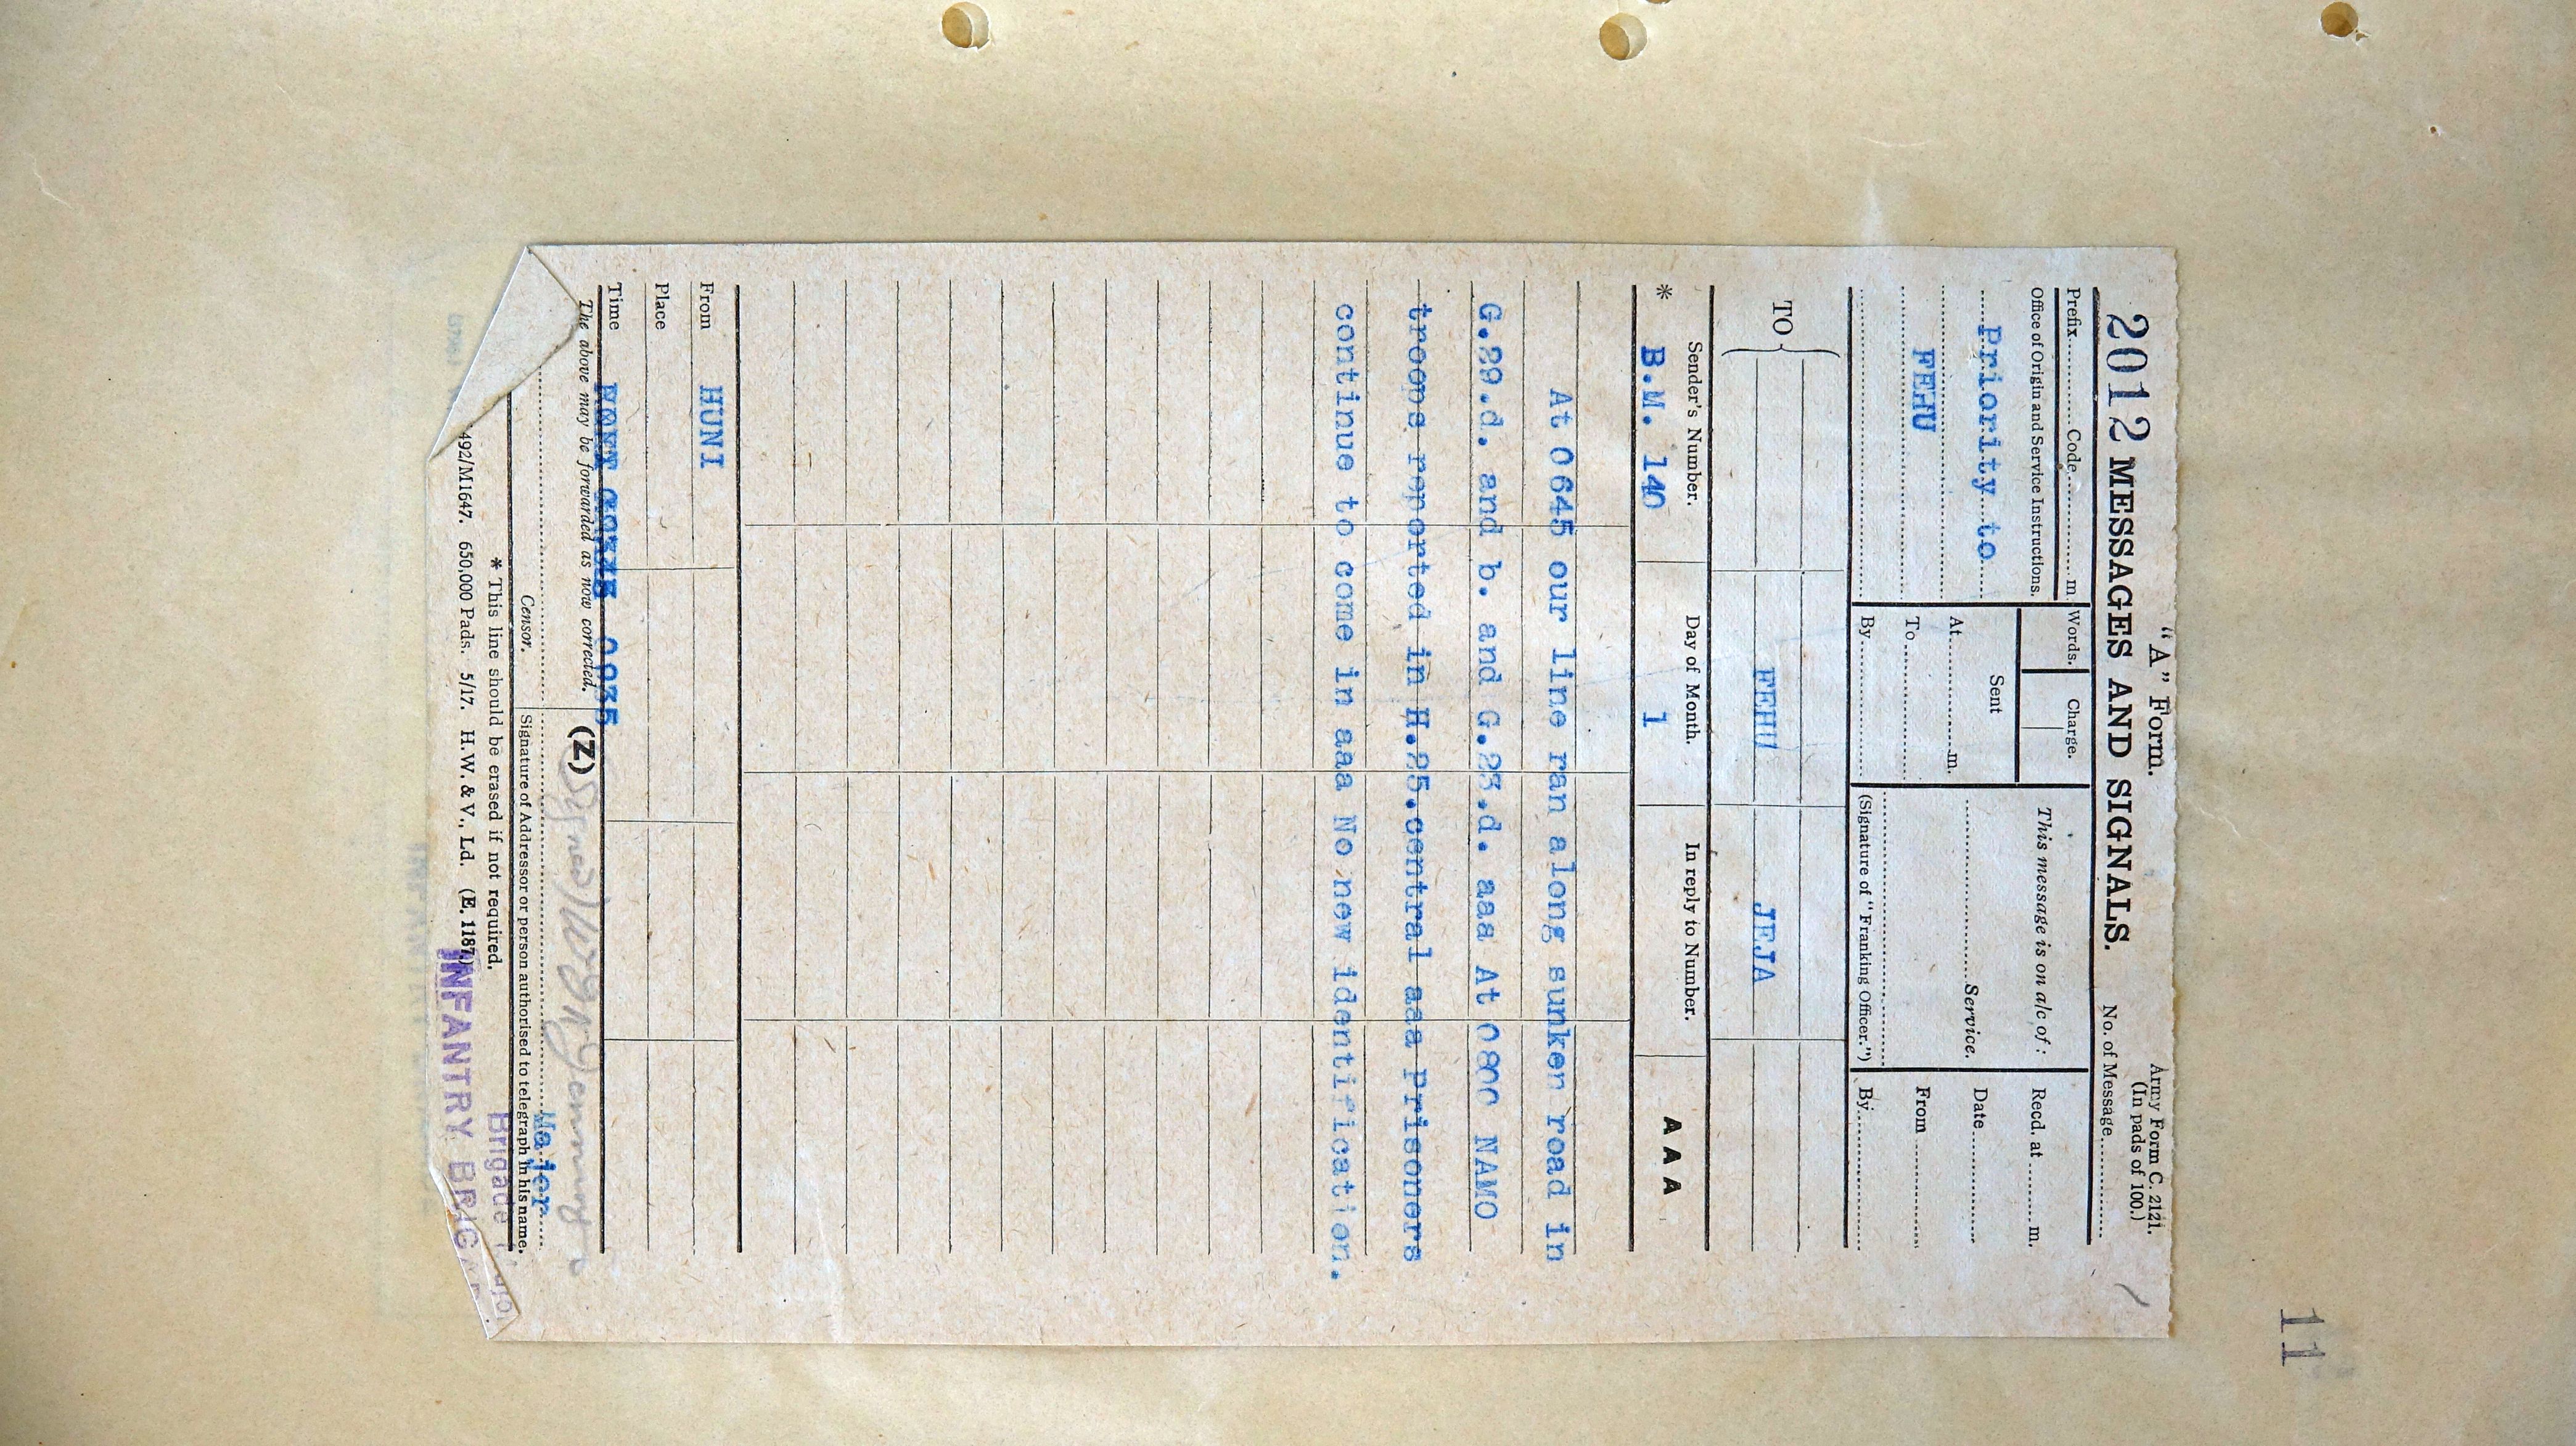 11
"A" Form.
Army Form C. 2121.
(In pads of 100.)
2012 MESSAGES AND SIGNALS.
No. of Message..........
Prefix..........Code..........m.
Words.
Charge.
This message is on a/c of :
Recd. at ........ m.
Office of Origin and Service Instructions.
Sent
Priority to
At..........m.
..........Service.
Date..........
FEHU
To..........
From..........
By..........
(Signature of "Franking Officer.")
By..........
TO
FEHU
JEJA
Sender's Number.
Day of Month.
In reply to Number.
* B.M. 140
1
A A A
At 0645 our line ran along sunken road in
G.29.d. and b. and G.23.d. aaa At 0800 NAMO
troops reported in H.25.central aaa Prisoners
continue to come in aaa No new identification.
From
HUNI
Place
Time
0935
The above may be forwarded as now corrected.
(Z)
(Signed)
Major
Censor.
Signature of Addressor or person authorised to telegraph in his name.
Brigade
* This line should be erased if not required.
492/M1647. 650,000 Pads. 5/17. H.W. & V., Ld. (E. 1187.)
INFANTRY BRIGAD